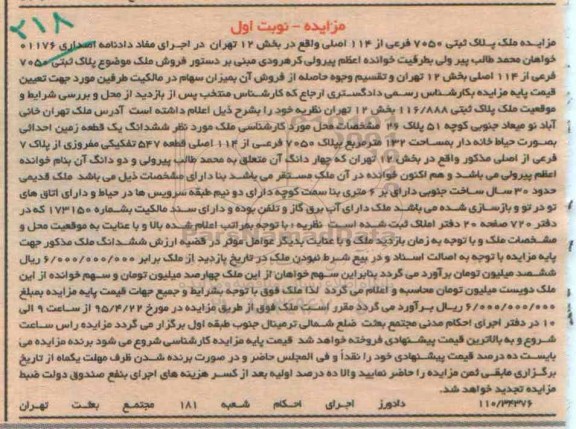 ۲۱۸
مزایده - نوبت اول
مزایده ملک پلاک ثبتی ۷۰۵۰ فرعی از ۱۱۴ اصلی واقع در بخش ۱۲ تهران در اجرای مفاد دادنامه اصداری ۰۱۱۷۶
خواهان محمد طالب پیر ولی بطرفیت خوانده اعظم پیرولی کرهرودی مبنی بر دستور فروش ملک موضوع پلاک ثبتی ۷۰۵۰
فرعی از ۱۱۴ اصلی بخش ۱۲ تهران و تقسیم وجوه حاصله از فروش آن بمیزان سهام در مالکیت طرفین مورد جهت تعیین
قیمت پایه مزایده بکارشناس رسمی دادگستری ارجاع که کارشناس منتخب پس از بازدید از محل و بررسی شرایط و
موقعیت ملک پلاک ثبتی ۱۱۶/۸۸۸ بخش ۱۲ تهران نظریه خود را بشرح ذیل اعلام داشته است آدرس ملک تهران خانی
آباد نو میعاد جنوبی کوچه ۵۱ پلاک ۲۶ مشخصات محل مورد کارشناسی ملک مورد نظر ششدانگ یک قطعه زمین احداثی
بصورت حیاط خانه دار بمساحت ۱۳۲ مترمربع بپلاک ۷۰۵۰ فرعی از ۱۱۴ اصلی قطعه ۵۴۷ تفکیکی مفروزی از پلاک ۷
فرعی از اصلی مذکور واقع در بخش ۱۲ تهران که چهار دانگ آن متعلق به محمد طالب پیرولی و دو دانگ آن بنام خوانده
اعظم پیرولی می باشد و هم اکنون خوانده در آن ملک مستقر می باشد بنا دارای مشخصات ذیل می باشد ملک قدیمی
حدود ۳۰ سال ساخت جنوبی دارای بر ۶ متری بنا سمت کوچه دارای دو نیم طبقه سرویس ها در حیاط و دارای اتاق های
تو در تو و بازسازی شده می باشد ملک دارای آب برق گاز و تلفن بوده و دارای سند مالکیت بشماره ۱۷۳۱۵۰ که در
دفتر ۷۲۰ صفحه ۲۰ دفتر املاک ثبت شده است نظریه : با توجه بمراتب اعلام شده بالا و با عنایت به موقعیت محل و
مشخصات ملک و با توجه به زمان بازدید ملک و با عنایت بدیگر عوامل موثر در قضیه ارزش ششدانگ ملک مذکور جهت
پایه مزایده با توجه به اصالت اسناد و در بیع شرط نبودن ملک در تاریخ بازدید از ملک برابر ۶/۰۰۰/۰۰۰/۰۰۰ ریال
ششصد میلیون تومان برآورد می گردد بنابراین سهم خواهان از این ملک چهارصد میلیون تومان و سهم خوانده از این
ملک دویست میلیون تومان محاسبه و اعلام می گردد لذا ملک فوق با توجه بشرایط و جمیع جهات قیمت پایه مزایده بمبلغ
۶/۰۰۰/۰۰۰/۰۰۰ ریال برآورد می گردد مقرر است ملک فوق از طریق مزایده در مورخ ۹۵/۴/۲۲ از ساعت ۹ الی
۱۰ در دفتر اجرای احکام مدنی مجتمع بعثت ضلع شمالی ترمینال جنوب طبقه اول برگزار می گردد مزایده راس ساعت
شروع و به بالاترین قیمت پیشنهادی فروخته خواهد شد قیمت پایه مزایده کارشناسی شروع می شود برنده مزایده می
بایست ده درصد قیمت پیشنهادی خود را نقداً و فی المجلس حاضر و در صورت برنده شدن ظرف مهلت یکماه از تاریخ
برگزاری مابقی ثمن مزایده را حاضر نمایید والا ده درصد اولیه بعد از کسر هزینه های اجرای بنفع صندوق دولت ضبط
مزایده تجدید خواهد شد.
۱۱۰/۳۴۳۷۶ دادورز اجرای احکام شعبه ۱۸۱ مجتمع بعثت تهران